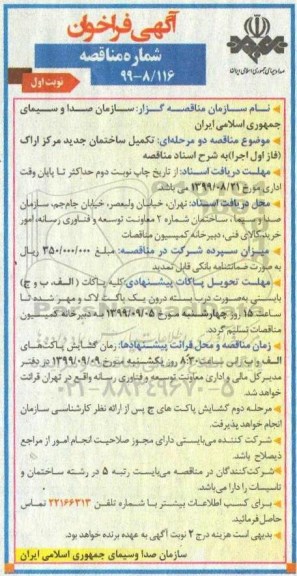 آگهی فراخوان
شماره مناقصه
۹۹-۸/۱۱۶
نوبت اول
صدا و سیمای جمهوری اسلامی ایران
نام سازمان مناقصه گزار: سازمان صدا و سیمای
جمهوری اسلامی ایران
موضوع مناقصه دو مرحله‌ای: تکمیل ساختمان جدید مرکز اراک
(فاز اول اجرا) به شرح اسناد مناقصه
مهلت دریافت اسناد: از تاریخ چاپ نوبت دوم حداکثر تا پایان وقت
اداری مورخ ۱۳۹۹/۰۸/۲۱ می باشد.
محل دریافت اسناد: تهران، خیابان ولیعصر، خیابان جام‌جم، سازمان
صدا و سیما، ساختمان شماره ۲ معاونت توسعه و فناوری رسانه، امور
خرید کالای فنی، دبیرخانه کمیسیون مناقصات
میزان سپرده شرکت در مناقصه: مبلغ ۳۵۰/۰۰۰/۰۰۰ ریال
به صورت ضمانتنامه بانکی قابل تمدید
مهلت تحویل پاکات پیشنهادی: کلیه پاکات (الف، ب و ج)
بایستی به‌صورت درب بسته درون یک پاکت لاک و مهر شده تا
ساعت ۱۵ روز چهارشنبه مورخ ۱۳۹۹/۰۹/۰۵ به دبیرخانه کمیسیون
مناقصات تسلیم گردد.
زمان مناقصه و محل قرائت پیشنهادها: زمان گشایش پاکت‌های
الف و ب راس ساعت ۸:۳۰ روز یکشنبه مورخ ۱۳۹۹/۰۹/۰۹ در دفتر
مدیر کل مالی و اداری معاونت توسعه و فناوری رسانه واقع در تهران قرائت
خواهد شد.
مرحله دوم گشایش پاکت های ج پس از ارائه نظر کارشناسی سازمان
انجام خواهد پذیرفت.
شرکت کننده می‌بایستی دارای مجوز صلاحیت انجام امور از مراجع
ذیصلاح باشد.
شرکت‌کنندگان در مناقصه می‌بایست رتبه ۵ در رشته ساختمان و
تاسیسات را دارا می‌باشد.
برای کسب اطلاعات بیشتر با شماره تلفن ۲۲۱۶۶۳۱۳ تماس
حاصل فرمائید.
بدیهی است هزینه درج ۲ نوبت آگهی به عهده برنده خواهد بود.
سازمان صدا و سیمای جمهوری اسلامی ایران
۰۲۱-۸۸۳۴۹۶۷۰-۵